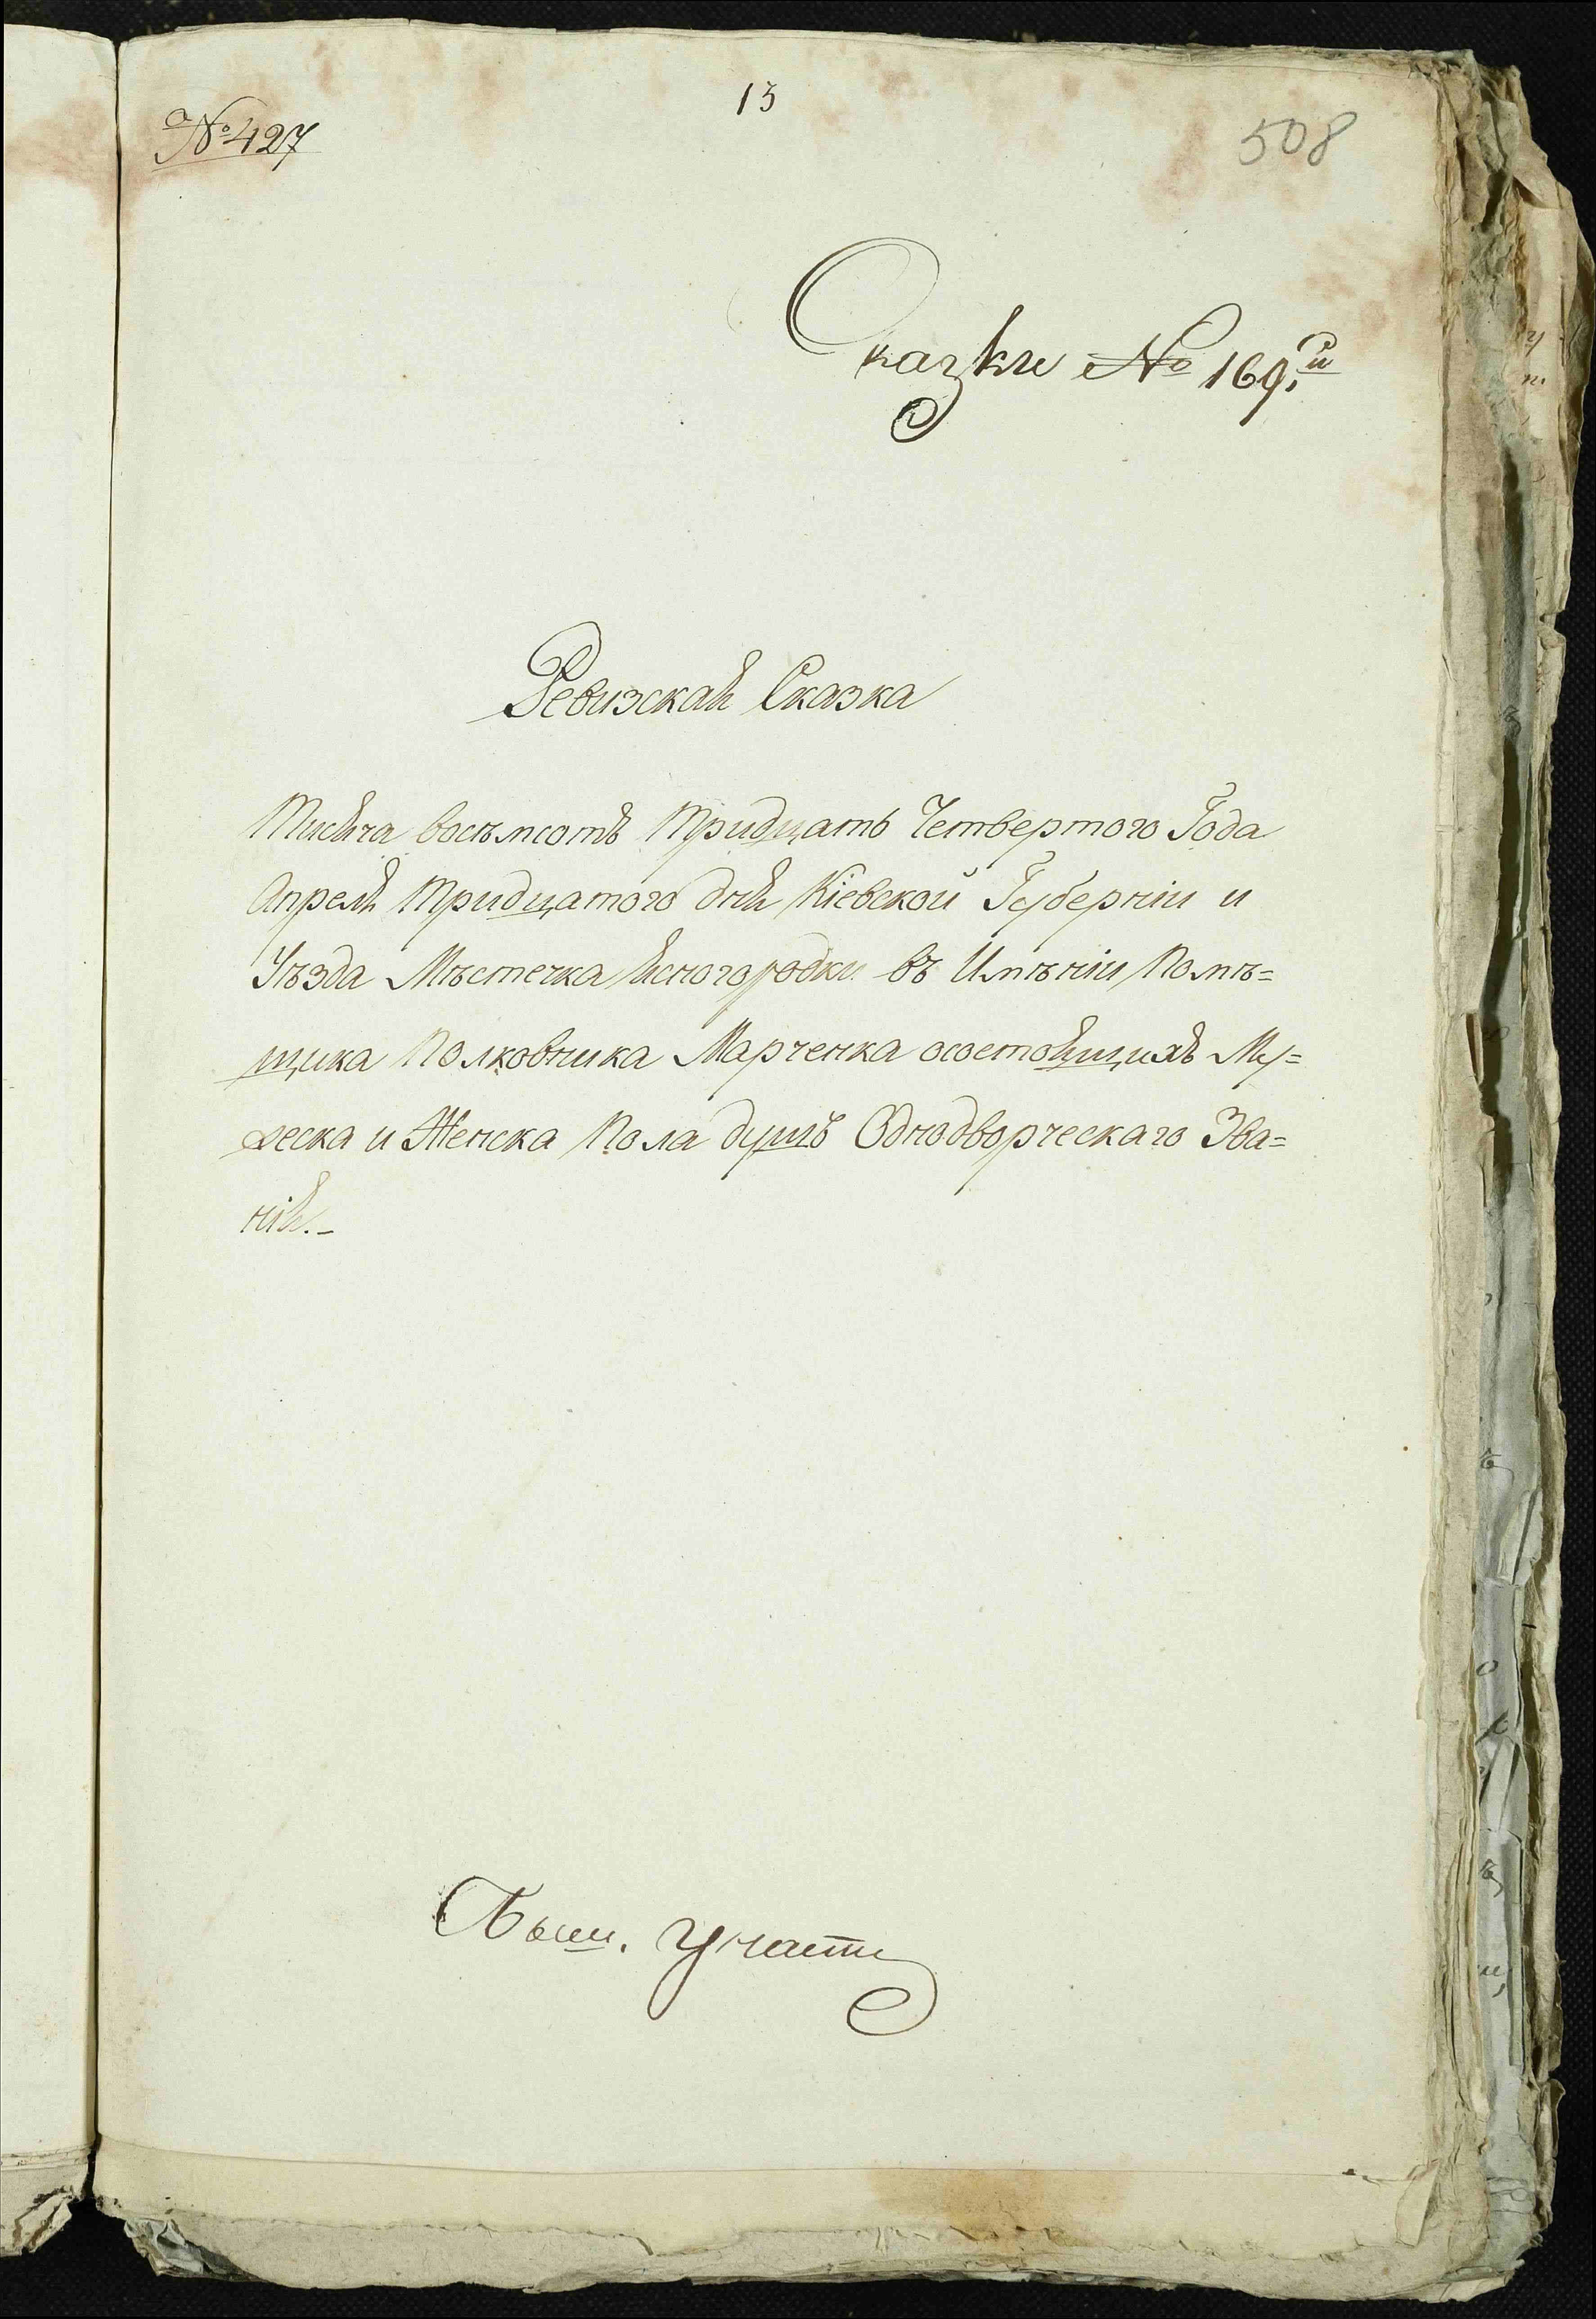 № 427
13
508
Сказки № 169.й
Ревизская Сказка
Тисяча восѣмсотъ Тридцать Четвертого Года
Апреля Тридцатого дня Кіевской Губерніи и
Уѣзда Мѣстечка Ясногородки въ Имѣніи Помѣ=
щика Полковника Марченка осостоящихъ Му=
жеска и Женска Пола душъ Однодворческаго Зва=
нія.-